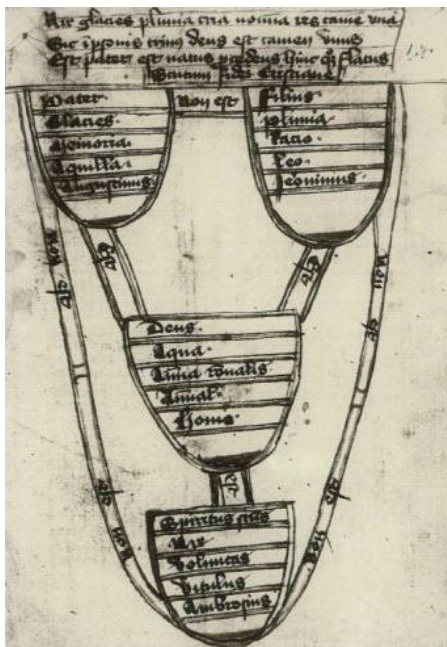 Nix glacies pluuia tria nomina res tame una
Sic i psonis trinus deus est tamen vnus
Est pater est natus pcedens hinc q flatus
Scutum fidei Cristiane
Pater.
Glacies.
Memoria
Aquilla.
Augustinus
Non est
Filius
Pluuia
Racio
Leo.
Jeronimus.
Non
Non
Deus.
Aqua.
Aīa rōnalis
Animal.
Homo.
Non
Non
Spiritus scūs
Nix
Voluntas
Vitulus
Ambrosius